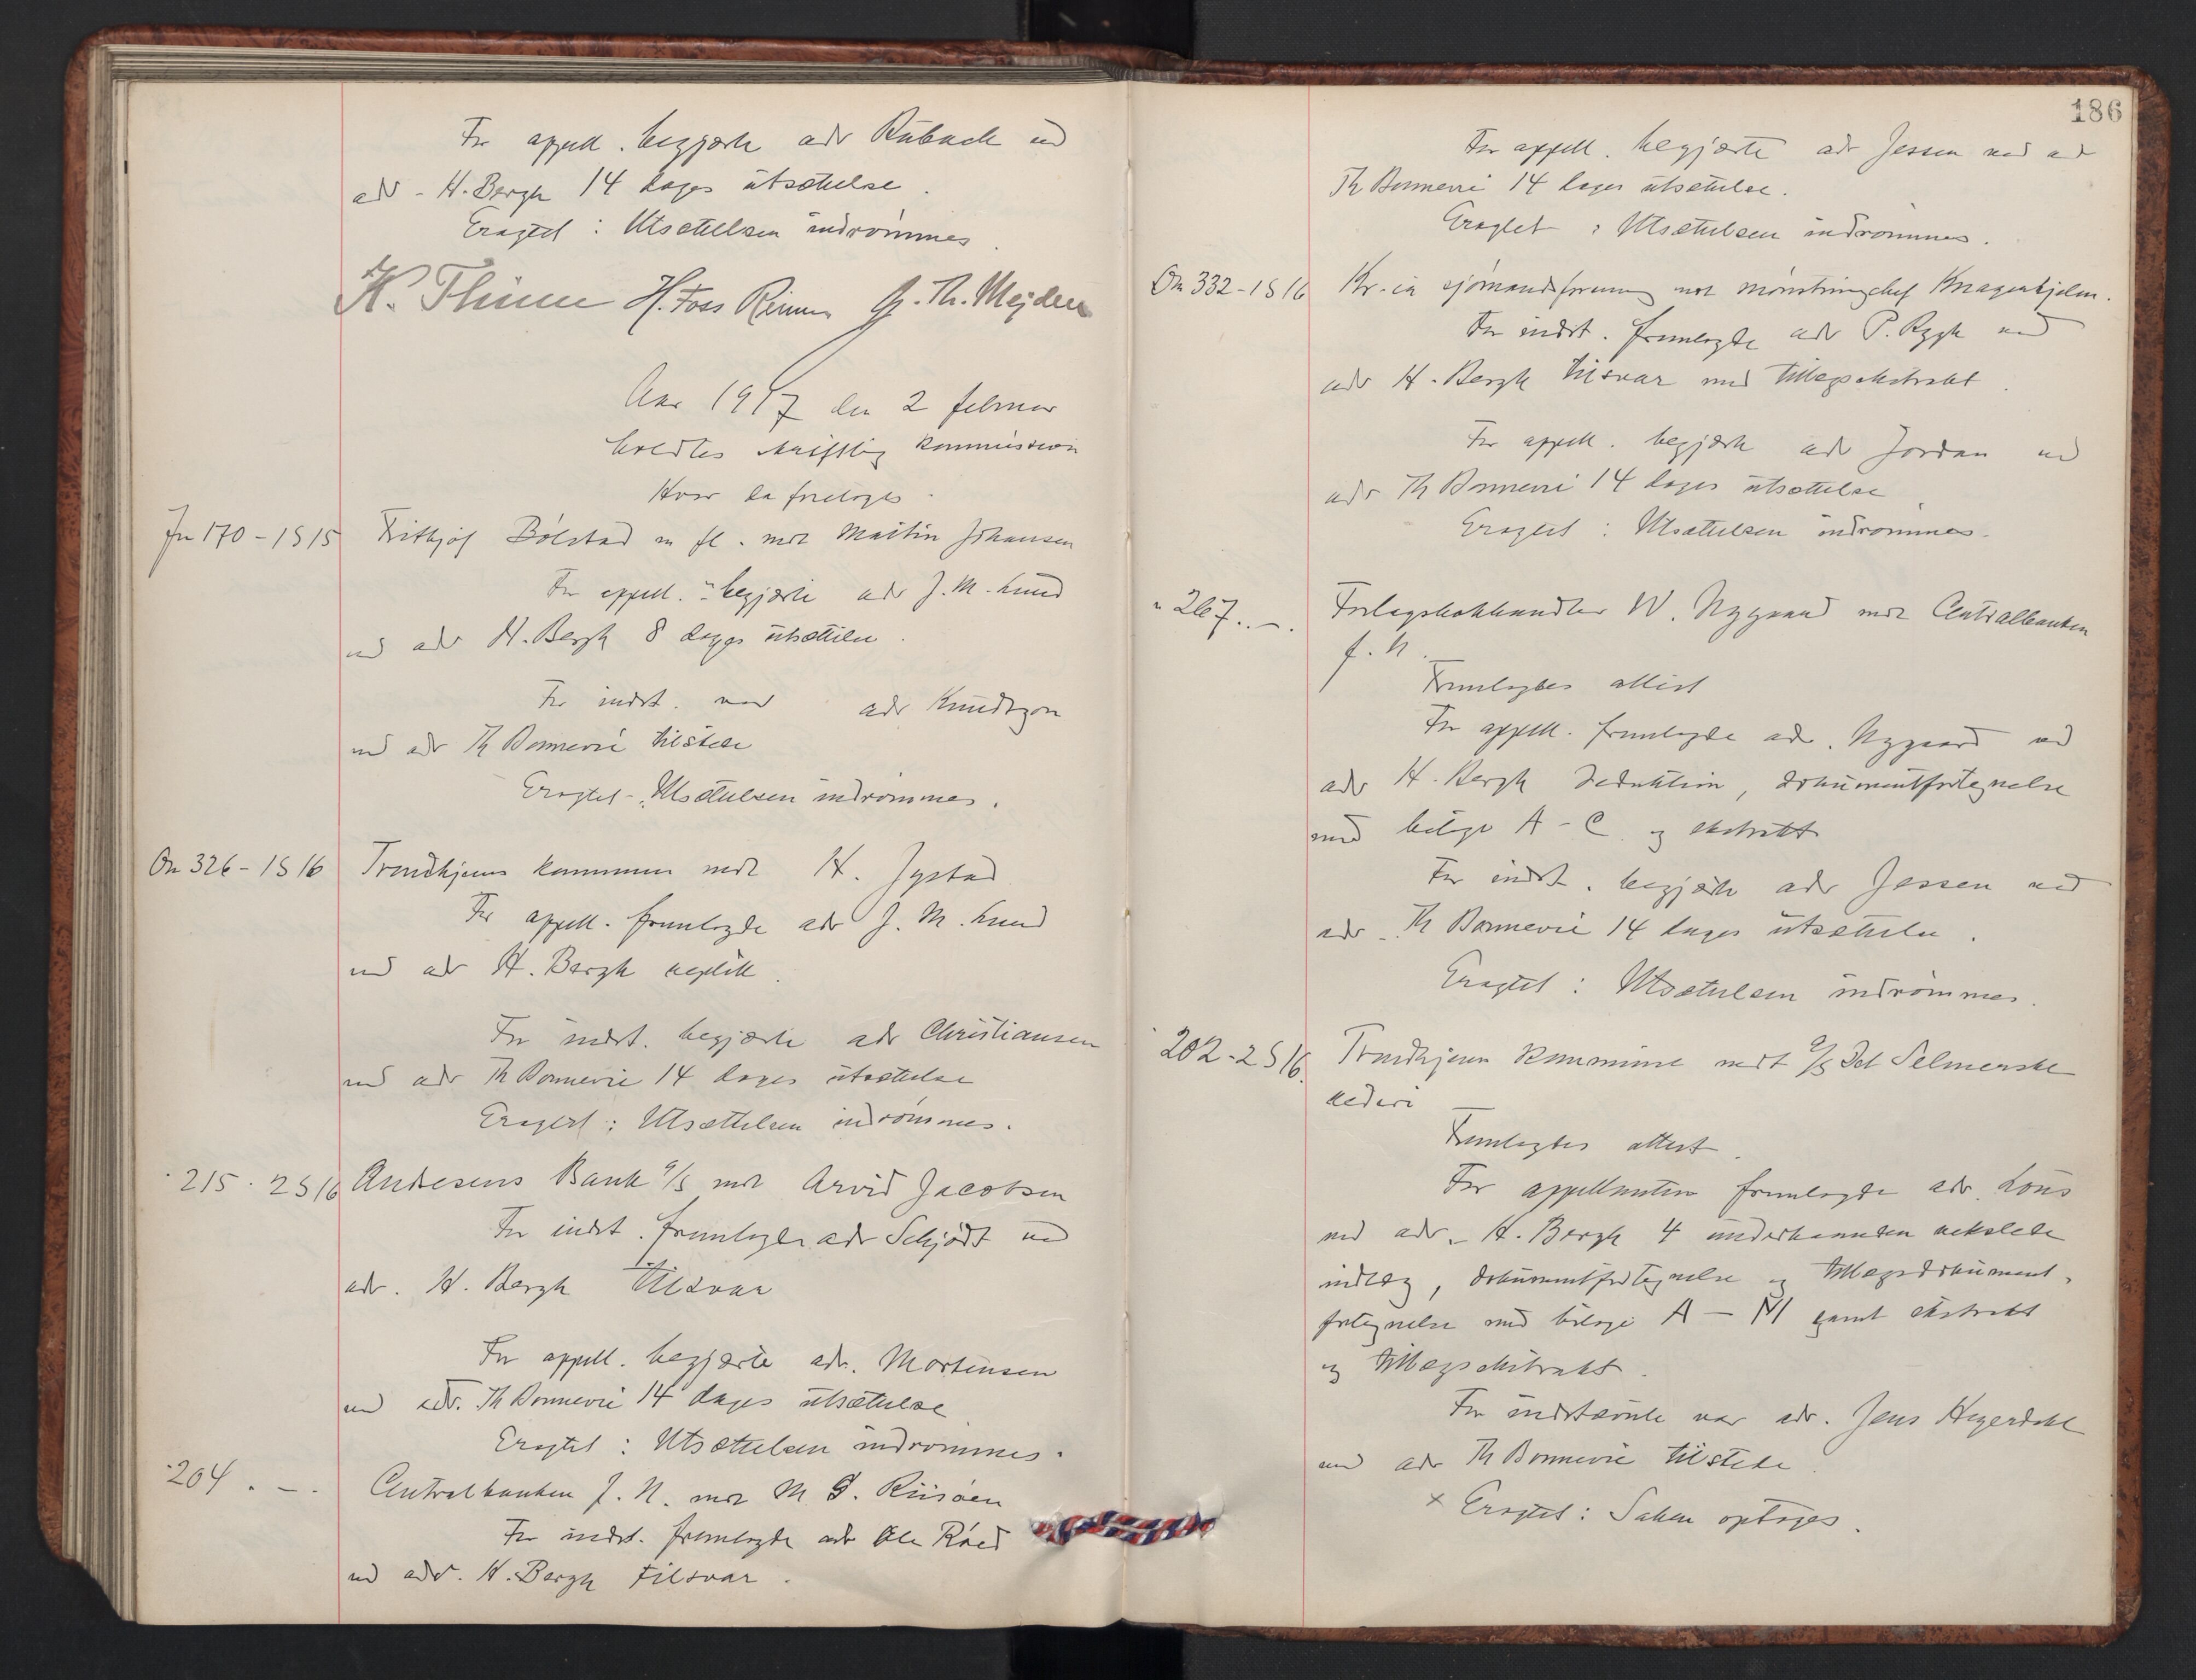 For appell. begjærte adv Rubach ved
adv. H. Bergh 14 dages utsættelse.
Eragtet: Utsættelsen indrømmes.
K. Thinn H. Foss Reimers G. Th. Mejdell
Aar 1917 den 2 februar
holdtes skriftlig kommission
Hvor da foretoges
Jn 170-1S15 Frithjof Bølstad m fl. mot Martin Johansen
For appell. begjærte adv J. M. Lund
ved adv H. Bergh 8 dages utsættelse.
For indst. var adv Knudtzon
ved adv Th Bonnevie tilstede
Eragtet: Utsættelsen indrømmes.
On 326-1S16 Trondhjems kommune mot H. Jystad
For appell. fremlagde adv J. M. Lund
ved adv H. Bergh replik.
For indst. begjærte adv Christiansen
ved adv Th Bonnevie 14 dages utsættelse
Eragtet: Utsættelsen indrømmes.
" 215. 2S16 Andresens Bank a/s mot Arvid Jacobsen
For indst. fremlagde adv Schjødt ved
adv. H. Bergh Tilsvar
For appell. begjærte adv. Mortensen
ved adv. Th Bonnevie 14 dages utsættelse
Eragtet: Utsættelsen indrømmes.
" 204. -. Centralbanken f. N. mot M S. Riisøen
For indst. fremlagde adv Ole Røed
ved adv. H. Bergh Tilsvar.
186
For appell. begjærte adv Jessen ved adv
Th Bonnevie 14 dages utsættelse.
Eragtet: Utsættelsen indrømmes.
On 332-1S16 Kr.ia sjømandsforening mot mønstringschef Knagenhjelm.
For indst. fremlagde adv P. Rygh ved
adv H. Bergh tilsvar med tillægsekstrakt.
For appell. begjærte adv Jordan ved
adv Th Bonnevie 14 dages utsættelse
Eragtet: Utsættelsen indrømmes.
" 267. . -. Forlagsbokhandler W. Nygaard mot Centralbanken
f. N.
Fremlagdes attest
For appell. fremlagde adv. Nygaard ved
adv H. Bergh deduktion, dokumentfortegnelse
med bilage A-C og ekstrakt
For indst. begjærte adv Jessen ved
adv. Th Bonnevie 14 dages utsættelse.
Eragtet: Utsættelsen indrømmes.
" 202-2S16. Trondhjem kommune mot a/s Det Selmerske
rederi
Fremlagdes attest.
For appellanten fremlagde adv. Lous
ved adv. H. Bergh 4 underhaanden vekslede
indlæg, dokumentfortegnelse og tillægsdokument-
fortegnelse med bilage A-N samt ekstrakt
og tillægsekstrakt.
For indstævnte var adv. Jens Heyerdahl
ved adv Th Bonnevie tilstede.
x Eragtet: Saken optages.